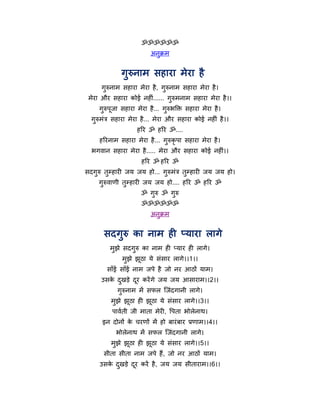 ॐॐॐॐॐॐ
अनुक्रम
गुरुनाम सहारा मेरा है
गुरुनाम सहारा मेरा है, गुरुनाम सहारा मेरा है।
मेरा और सहारा कोई नहीं...... गुरुमनाम सहारा मेरा है।।
गुरुपूजा सहारा मेरा है... गुरुभक्ति सहारा मेरा है।
गुरुमंत्र सहारा मेरा है... मेरा और सहारा कोई नहीं है।।
हरि ॐ हरि ॐ....
हरिनाम सहारा मेरा है... गुरुकृपा सहारा मेरा है।
भगवान सहारा मेरा है..... मेरा और सहारा कोई नहीं।।
हरि ॐ हरि ॐ
सदगुरु तुम्हारी जय जय हो... गुरुमंत्र तुम्हारी जय जय हो।
गुरुवाणी तुम्हारी जय जय हो.... हरि ॐ हरि ॐ
ॐ गुरु ॐ गुरु
ॐॐॐॐॐॐ
अनुक्रम
सदगुरु का नाम ही प्यारा लागे
मुझे सदगुरु का नाम ही प्यार ही लागे।
मुझे झूठा ये संसार लागे।।1।।
साँई साँई नाम जपे है जो नर आठों याम।
उसके दुखड़े दूर करेंगे जय जय आसाराम।।2।।
गुरुनाम में सफल जिंदगानी लागे।
मुझे झूठा ही झूठा ये संसार लागे।।3।।
पार्वती जी माता मेरी, पिता भोलेनाथ।
इन दोनों के चरणों में हो बारंबार प्रणाम।।4।।
भोलेनाथ में सफल जिंदगानी लागे।
मुझे झूठा ही झूठा ये संसार लागे।।5।।
सीता सीता नाम जपे है, जो नर आठों याम।
उसके दुखड़े दूर करे है, जय जय सीताराम।।6।।